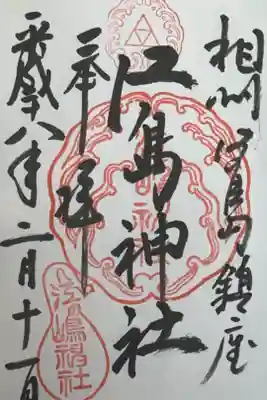 相州鎮座
奉拝
江島神社
平成十八年二月十一日
江嶋神社